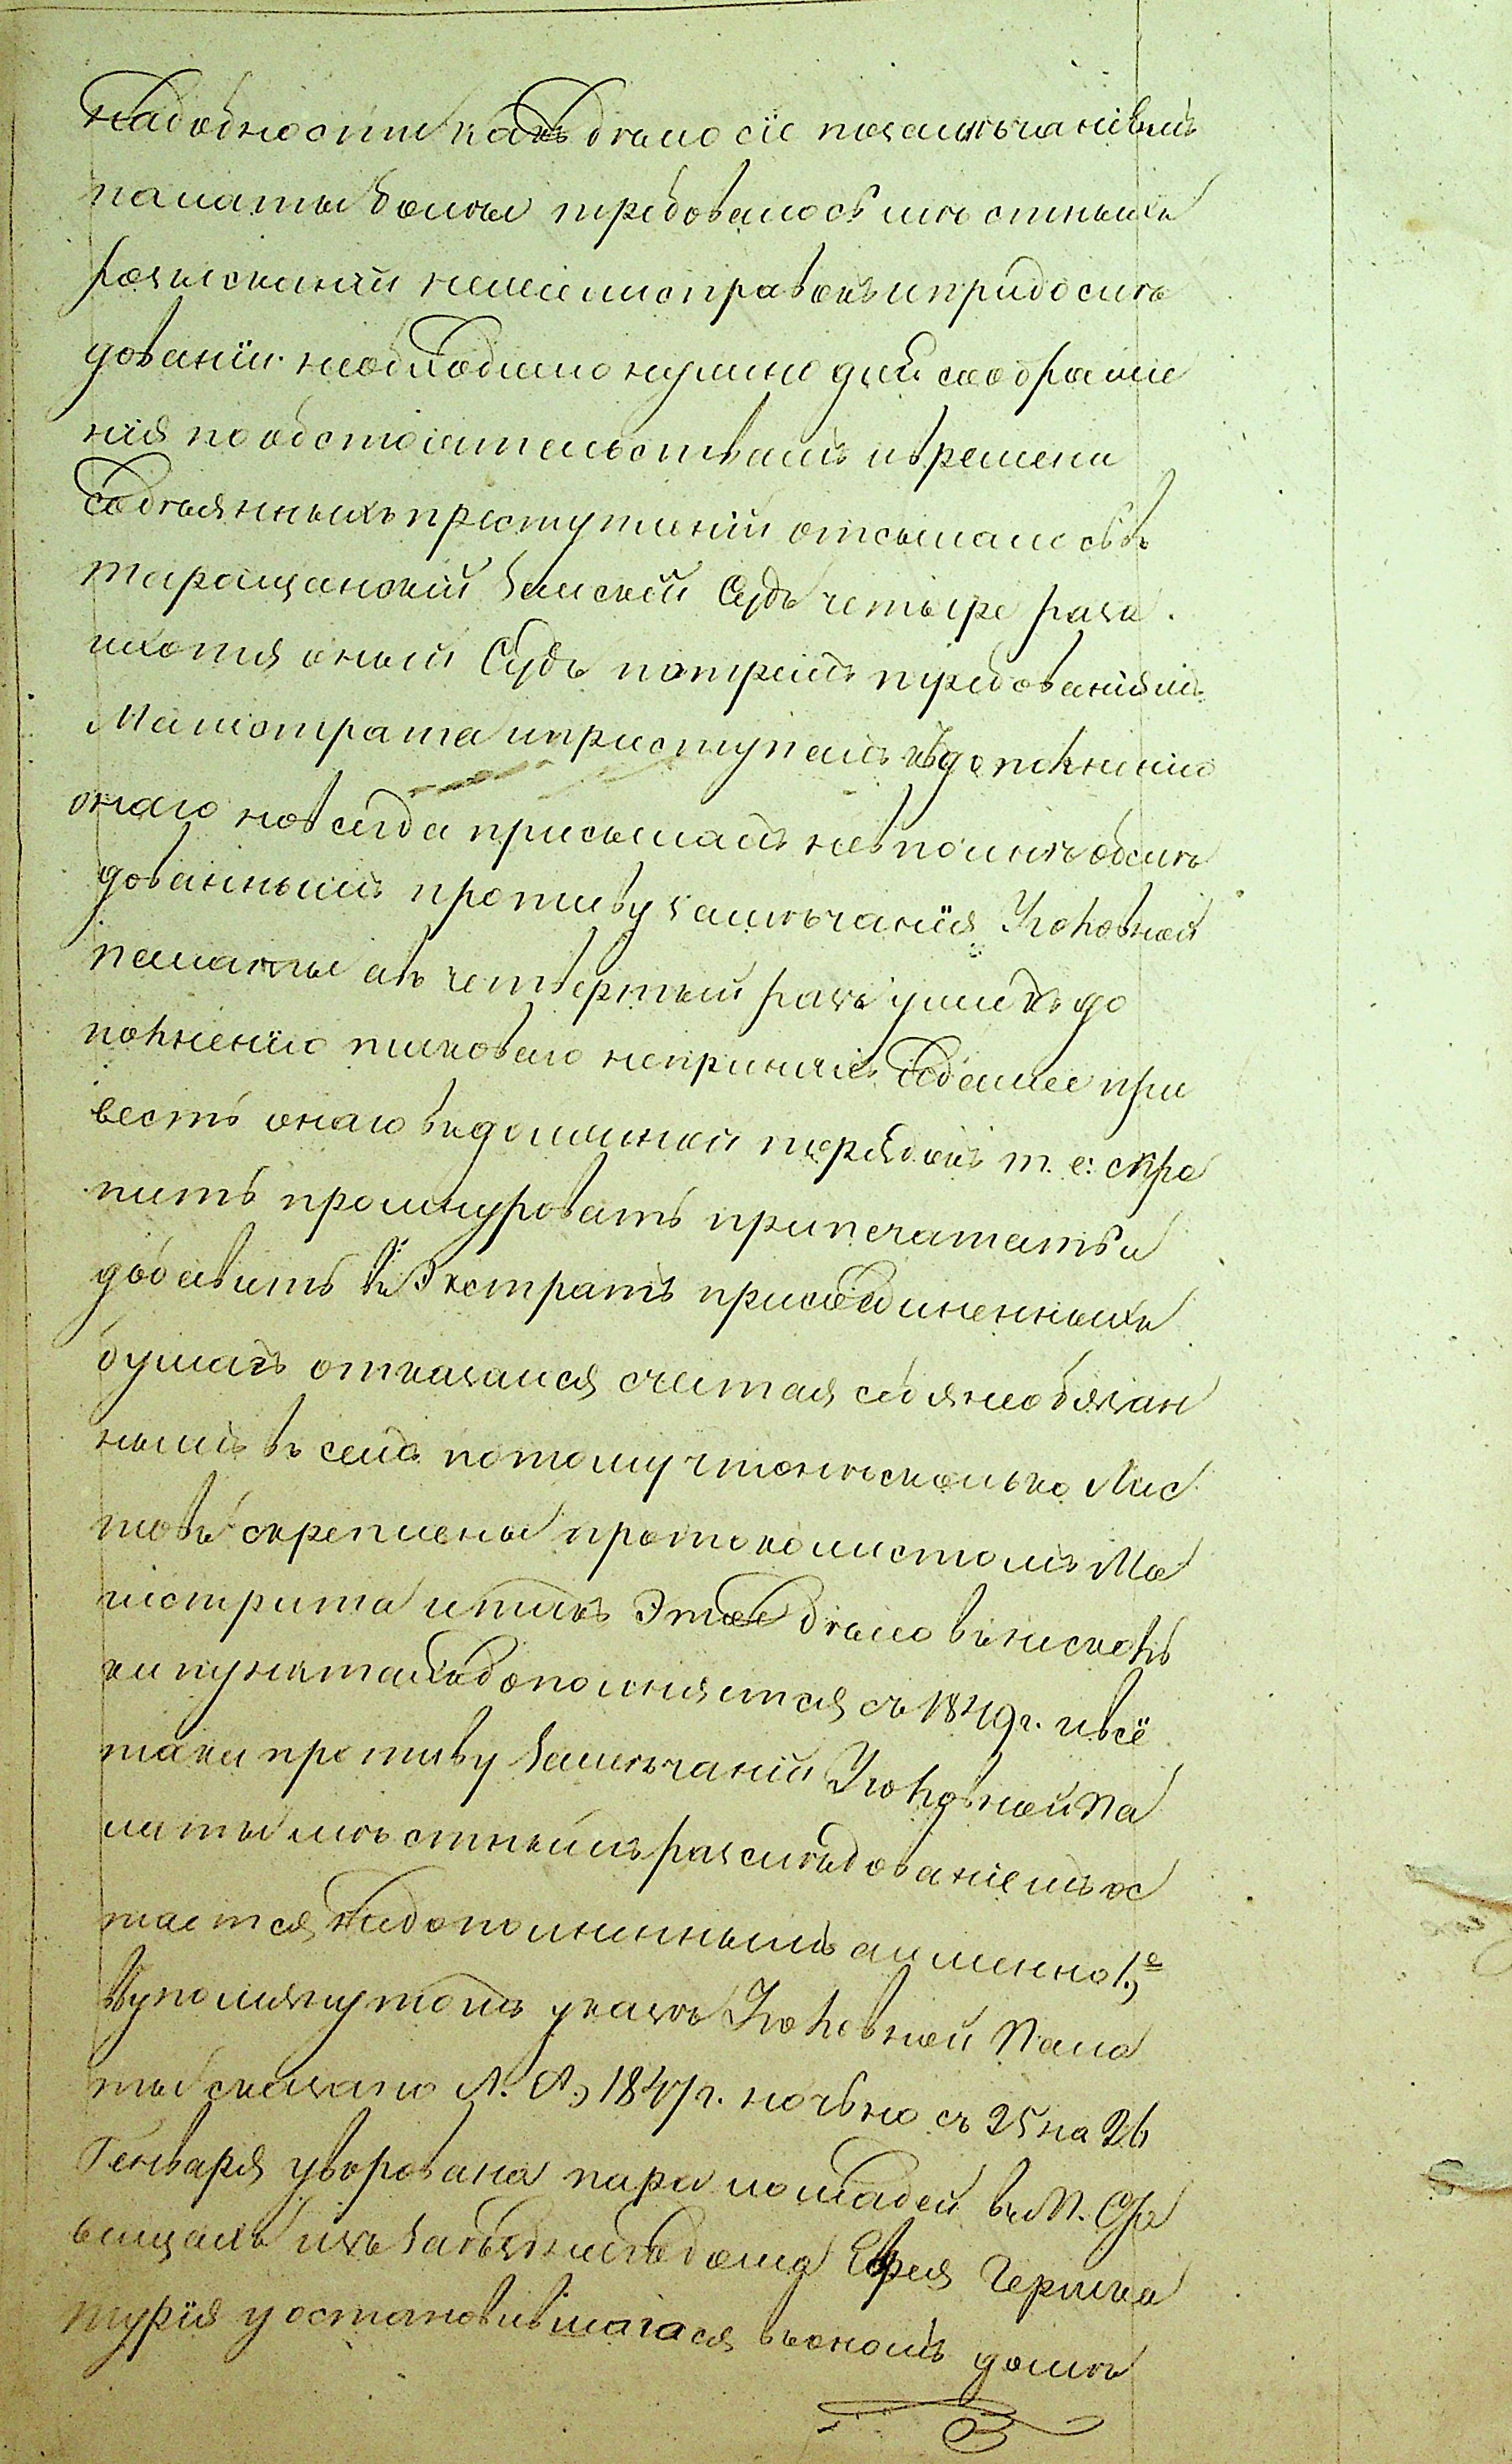 надобности какъ дѣло сіе позамѣчаніямъ
палаты болѣе требовалось мѣстныхъ
розысканій нежели справокъ и придослѣ
дованіи необходимо нужно для соображе
нія по обстоятельствамъ и времени
содѣянныхъ преступленій отсылалось въ
таращанскій Земскій Судъ четыре раза.
ихотя оный Судъ потремъ требованіямъ
Магистрата и приступалъ къ дополненію
онаго но всегда присылалъ не вполнѣ обслѣ
дованнымъ противу замѣчанія Уголовной
палаты а въ четвертый разъ уже къ до
полненію таковаго непринялъ и даже при
весть онаго въ должной порядокъ т. е: скре
пить прошнуровать припечатать и
добавить въ Экстрактъ присоединенныхъ
бумагъ отказался считая себя необязан
нымъ въ семъ потому что нѣсколько Лис
товъ скреплены протоколистомъ Ма
гистрата и такъ Этое дѣло въ нисколь
ки пунктахъ дополняется съ 1849 г. и всё
таки противу Замѣчаній Уголовной Па
латы мѣстнымъ разслѣдованіемъ ос
тается недополненнымъ а именно 1.е
Въ упомянутомъ указѣ Уголовной Пала
ты сказано Л. А., 1847 г. ночью съ 25 на 26
Генваря уворована пара лошадей въ М. Ста
вищахъ изъ Заѣзжаго дома Еврея Гершка
турія у остановившагося въ ономъ домѣ